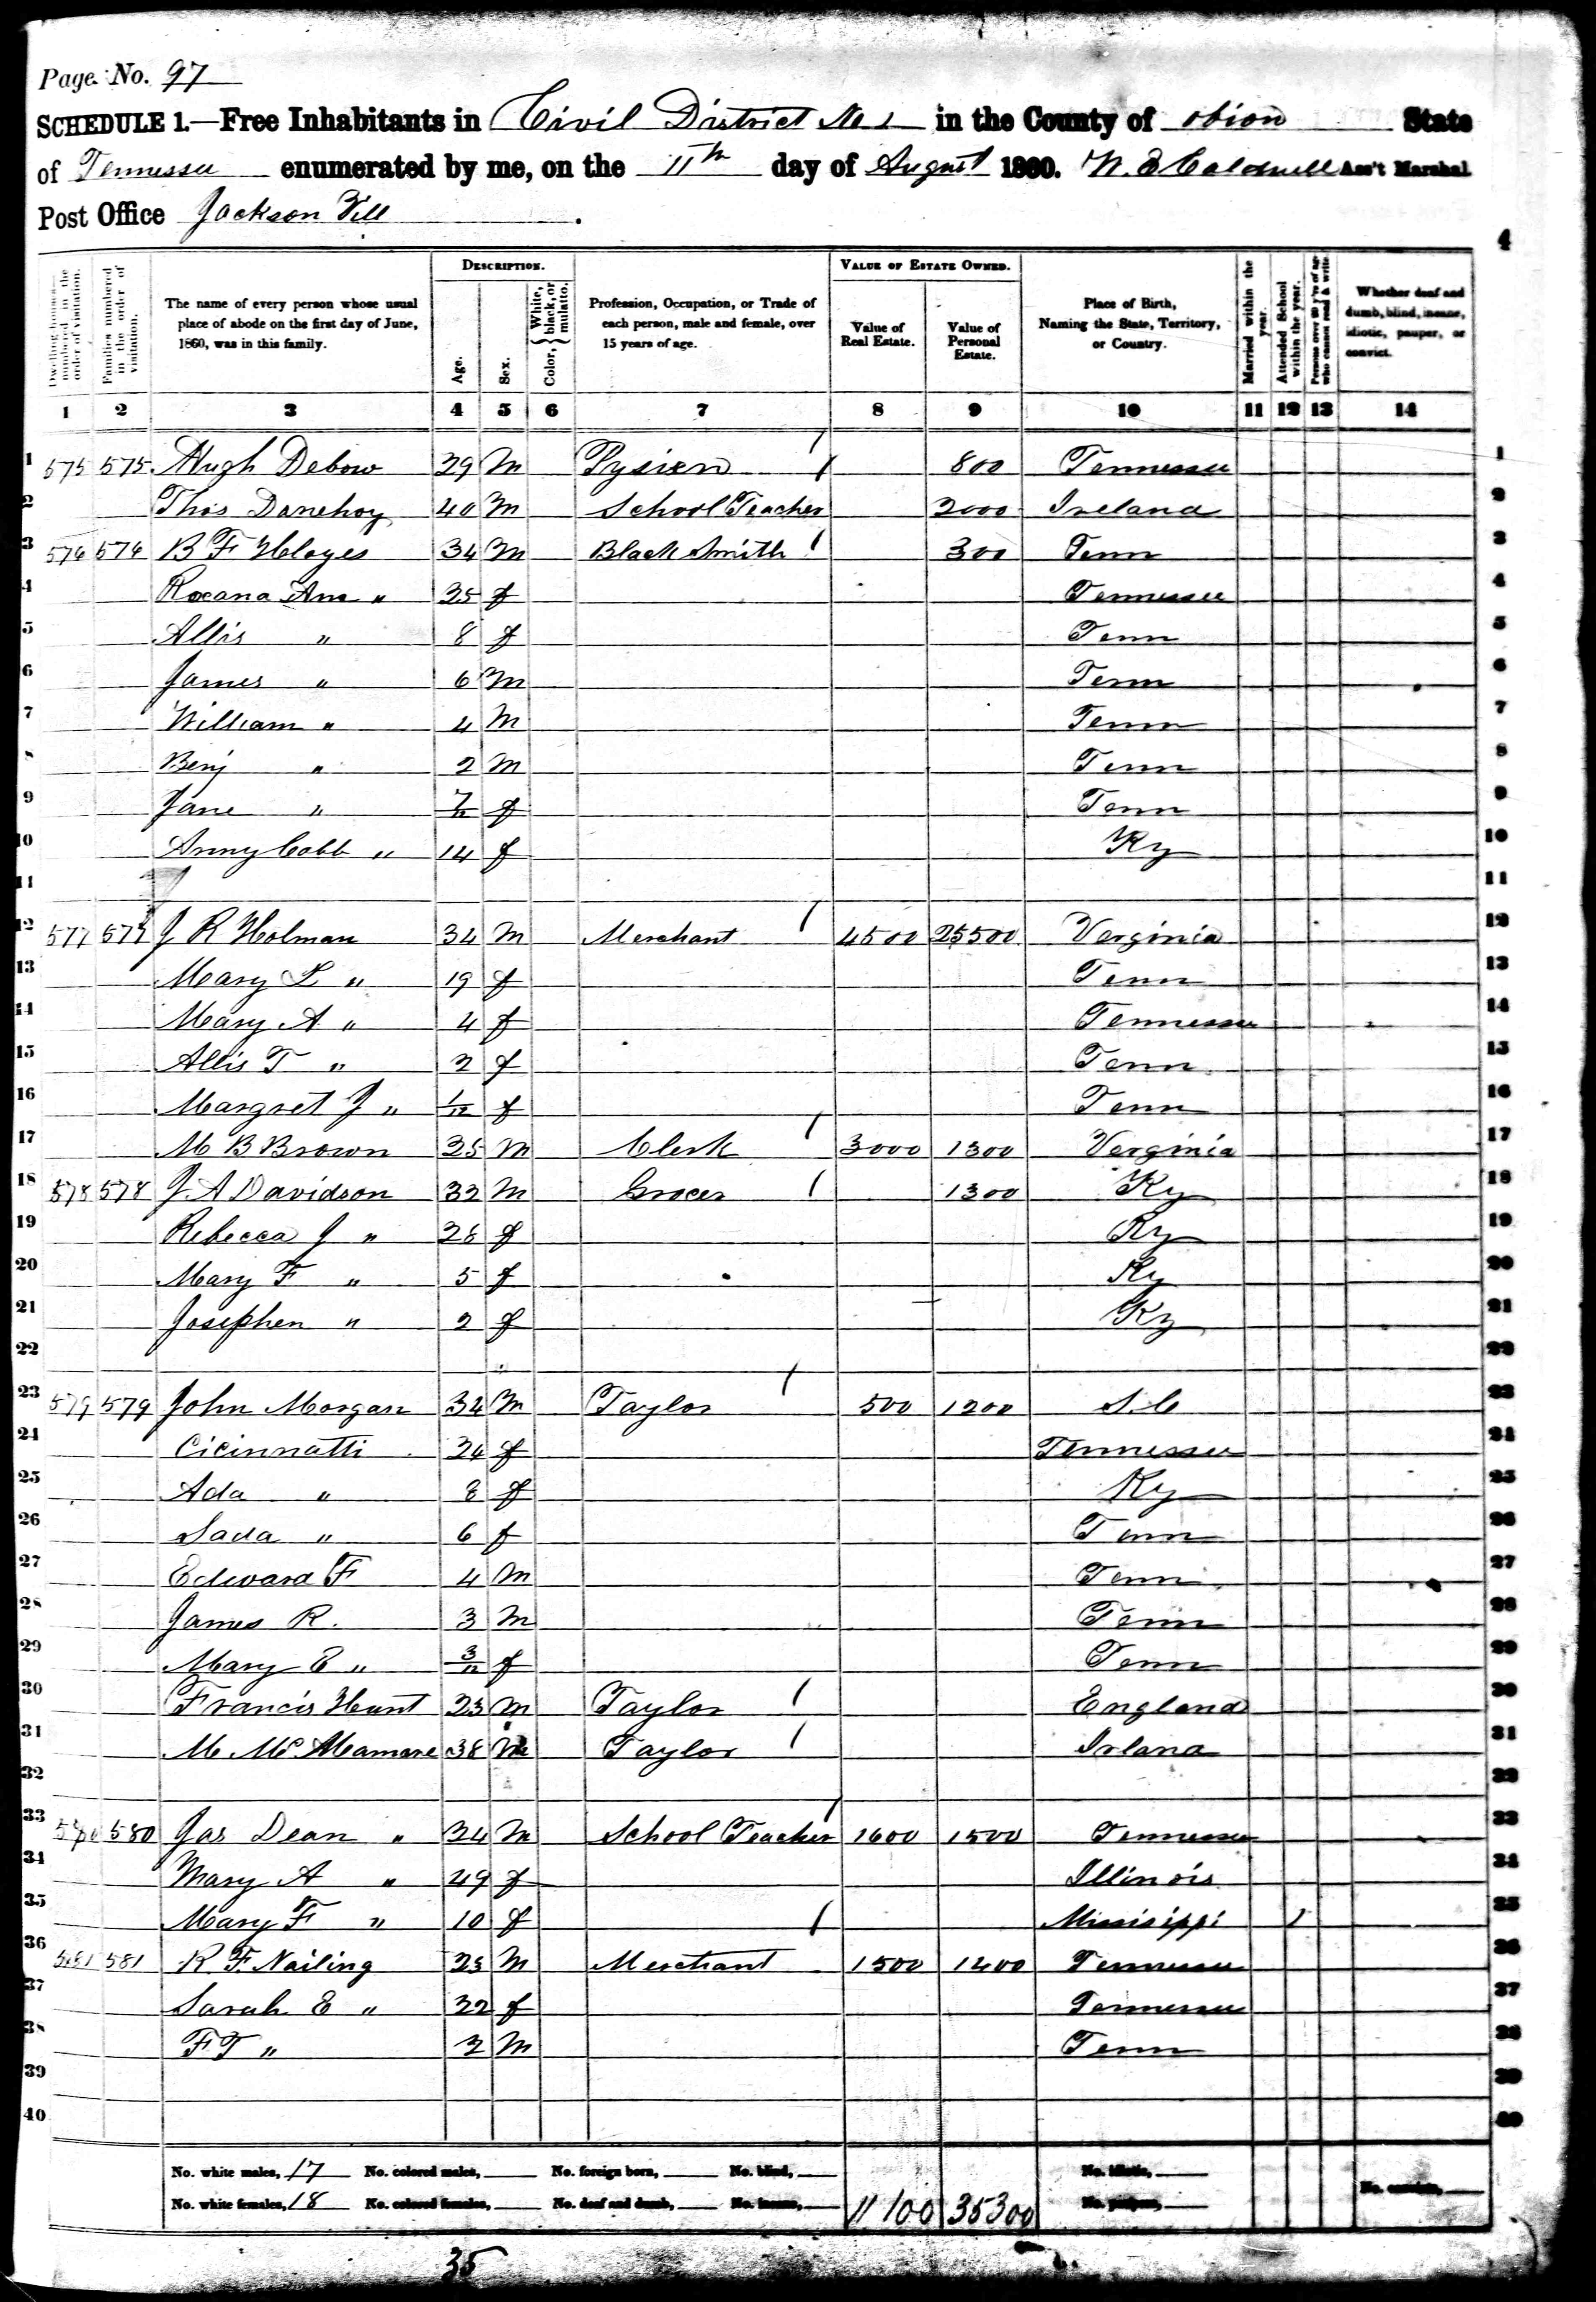 Page No. 97
SCHEDULE 1.—Free Inhabitants in Civil District No 1 in the County of obion State
of Tennessee enumerated by me, on the 11th day of August 1860. W. E Caldwell Ass't Marshal
Post Office Jackson Vill
4
DESCRIPTION. VALUE OF ESTATE OWNED.
Dwelling-houses numbered in the order of visitation. Families numbered in the order of visitation. The name of every person whose usual place of abode on the first day of June, 1860, was in this family. Age. Sex. Color, White, black, or mulatto. Profession, Occupation, or Trade of each person, male and female, over 15 years of age. Value of Real Estate. Value of Personal Estate. Place of Birth, Naming the State, Territory, or Country. Married within the year. Attended School within the year. Persons over 20 y'rs of age who cannot read & write. Whether deaf and dumb, blind, insane, idiotic, pauper, or convict.
1 2 3 4 5 6 7 8 9 10 11 12 13 14
1 575 575 Hugh Debow 29 M Pysien 800 Tennessee 1
2 Thos Danehoy 40 M School Teacher 2000 Ireland 2
3 576 576 B F Hloyes 34 M Black Smith 300 Tenn 3
4 Roxana Ann " 25 f Tennessee 4
5 Allis " 8 f Tenn 5
6 James " 6 M Tenn 6
7 William " 4 M Tenn 7
8 Benj " 2 M Tenn 8
9 Jane " 7/12 f Tenn 9
10 Anny Cobb " 14 f Ky 10
11 11
12 577 577 J R Holman 34 M Merchant 4500 25500 Verginia 12
13 Mary L " 19 f Tenn 13
14 Mary A " 4 f Tennessee 14
15 Allis T " 2 f Tenn 15
16 Margret J " 1/12 f Tenn 16
17 M B Brown 25 M Clerk 3000 1300 Verginia 17
18 578 578 J. A Davidson 32 M Grocer 1300 Ky 18
19 Rebecca J " 28 f Ky 19
20 Mary F " 5 f Ky 20
21 Josephen " 2 f Ky 21
22 22
23 579 579 John Morgan 34 M Taylor 500 1200 S. C 23
24 Cicinnatti 24 f Tennessee 24
25 Ada " 8 f Ky 25
26 Sada " 6 f Tenn 26
27 Edward F 4 M Tenn 27
28 James R. 3 M Tenn 28
29 Mary E " 3/12 f Tenn 29
30 Francis Hunt 23 M Taylor England 30
31 M Mc 38 M Taylor Irland 31
32 32
33 580 580 Jas Dean " 34 M School Teacher 1600 1500 Tennessee 33
34 Mary A " 49 f Illinois 34
35 Mary F " 10 f Missisippi 1 35
36 581 581 R. F. Nailing 23 M Merchant 1500 1200 Tennessee 36
37 Sarah E " 22 f Tennessee 37
38 F T " 2 M Tenn 38
39 39
40 40
No. white males, 17 No. colored males, No. foreign born, No. blind, No. idiotic,
No. white females, 18 No. colored females, No. deaf and dumb, No. insane, 11100 35300 No. paupers, No. convicts,
35